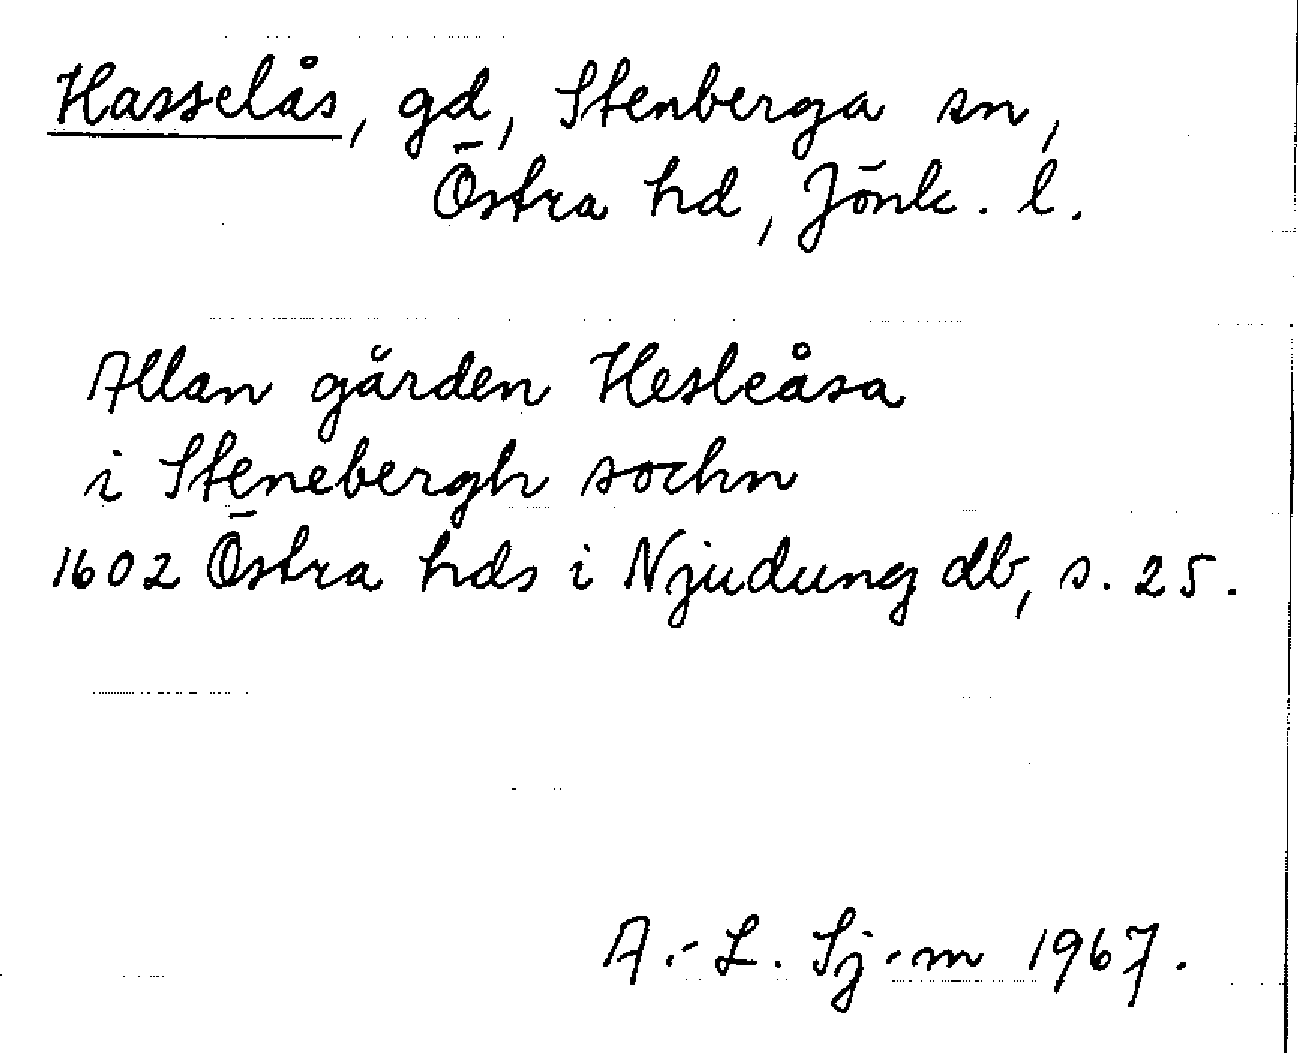 Hasselås, gd, Stenberga sn,
Östra hd, Jönk. l.
Allan gården Hesleåsa
i Stenebergh sochn
1602 Östra hds i Njudung db, s. 25.
A.-L. Sj-m 1967.